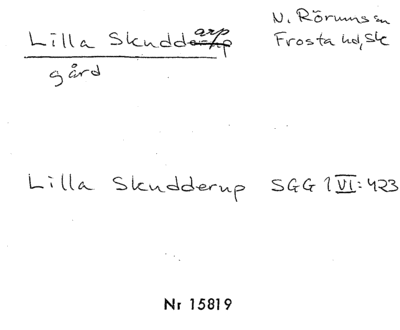 Lilla Skuddarp
N. Rörums sn
Frosta hd, Sk
gård
Lilla Skudderup SGG 1 VI: 423
Nr 15819